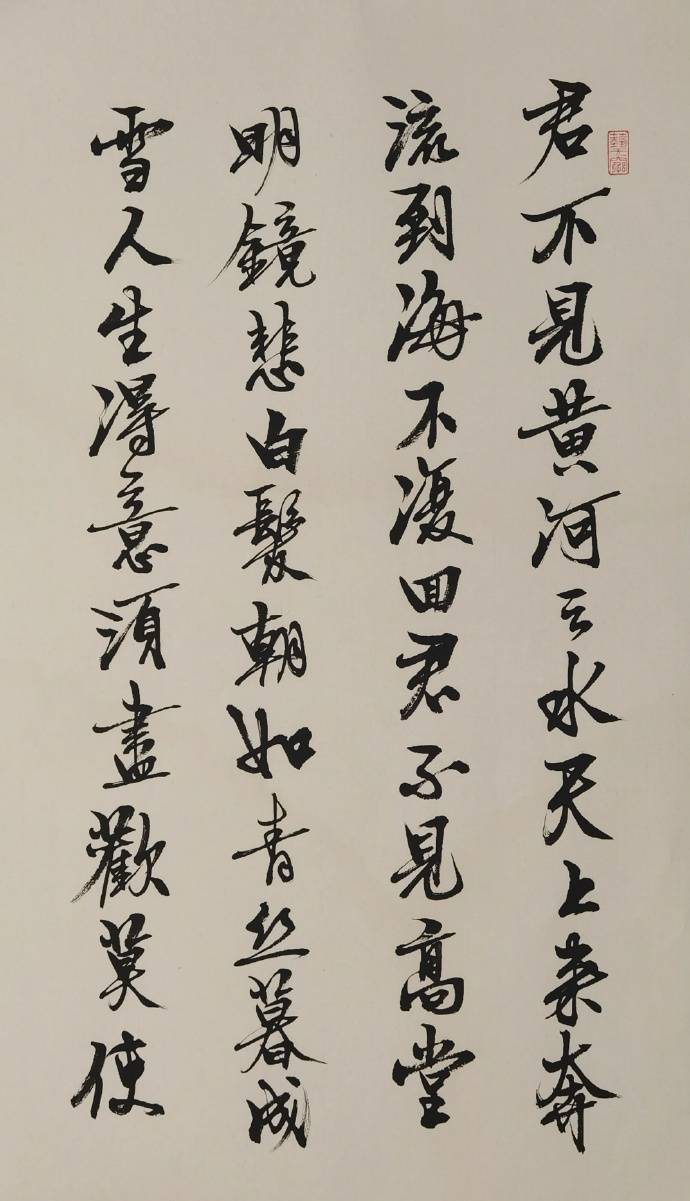 君不見黄河之水天上来奔
流到海不復回君不見高堂
明鏡悲白髮朝如青丝暮成
雪人生得意須盡歡莫使